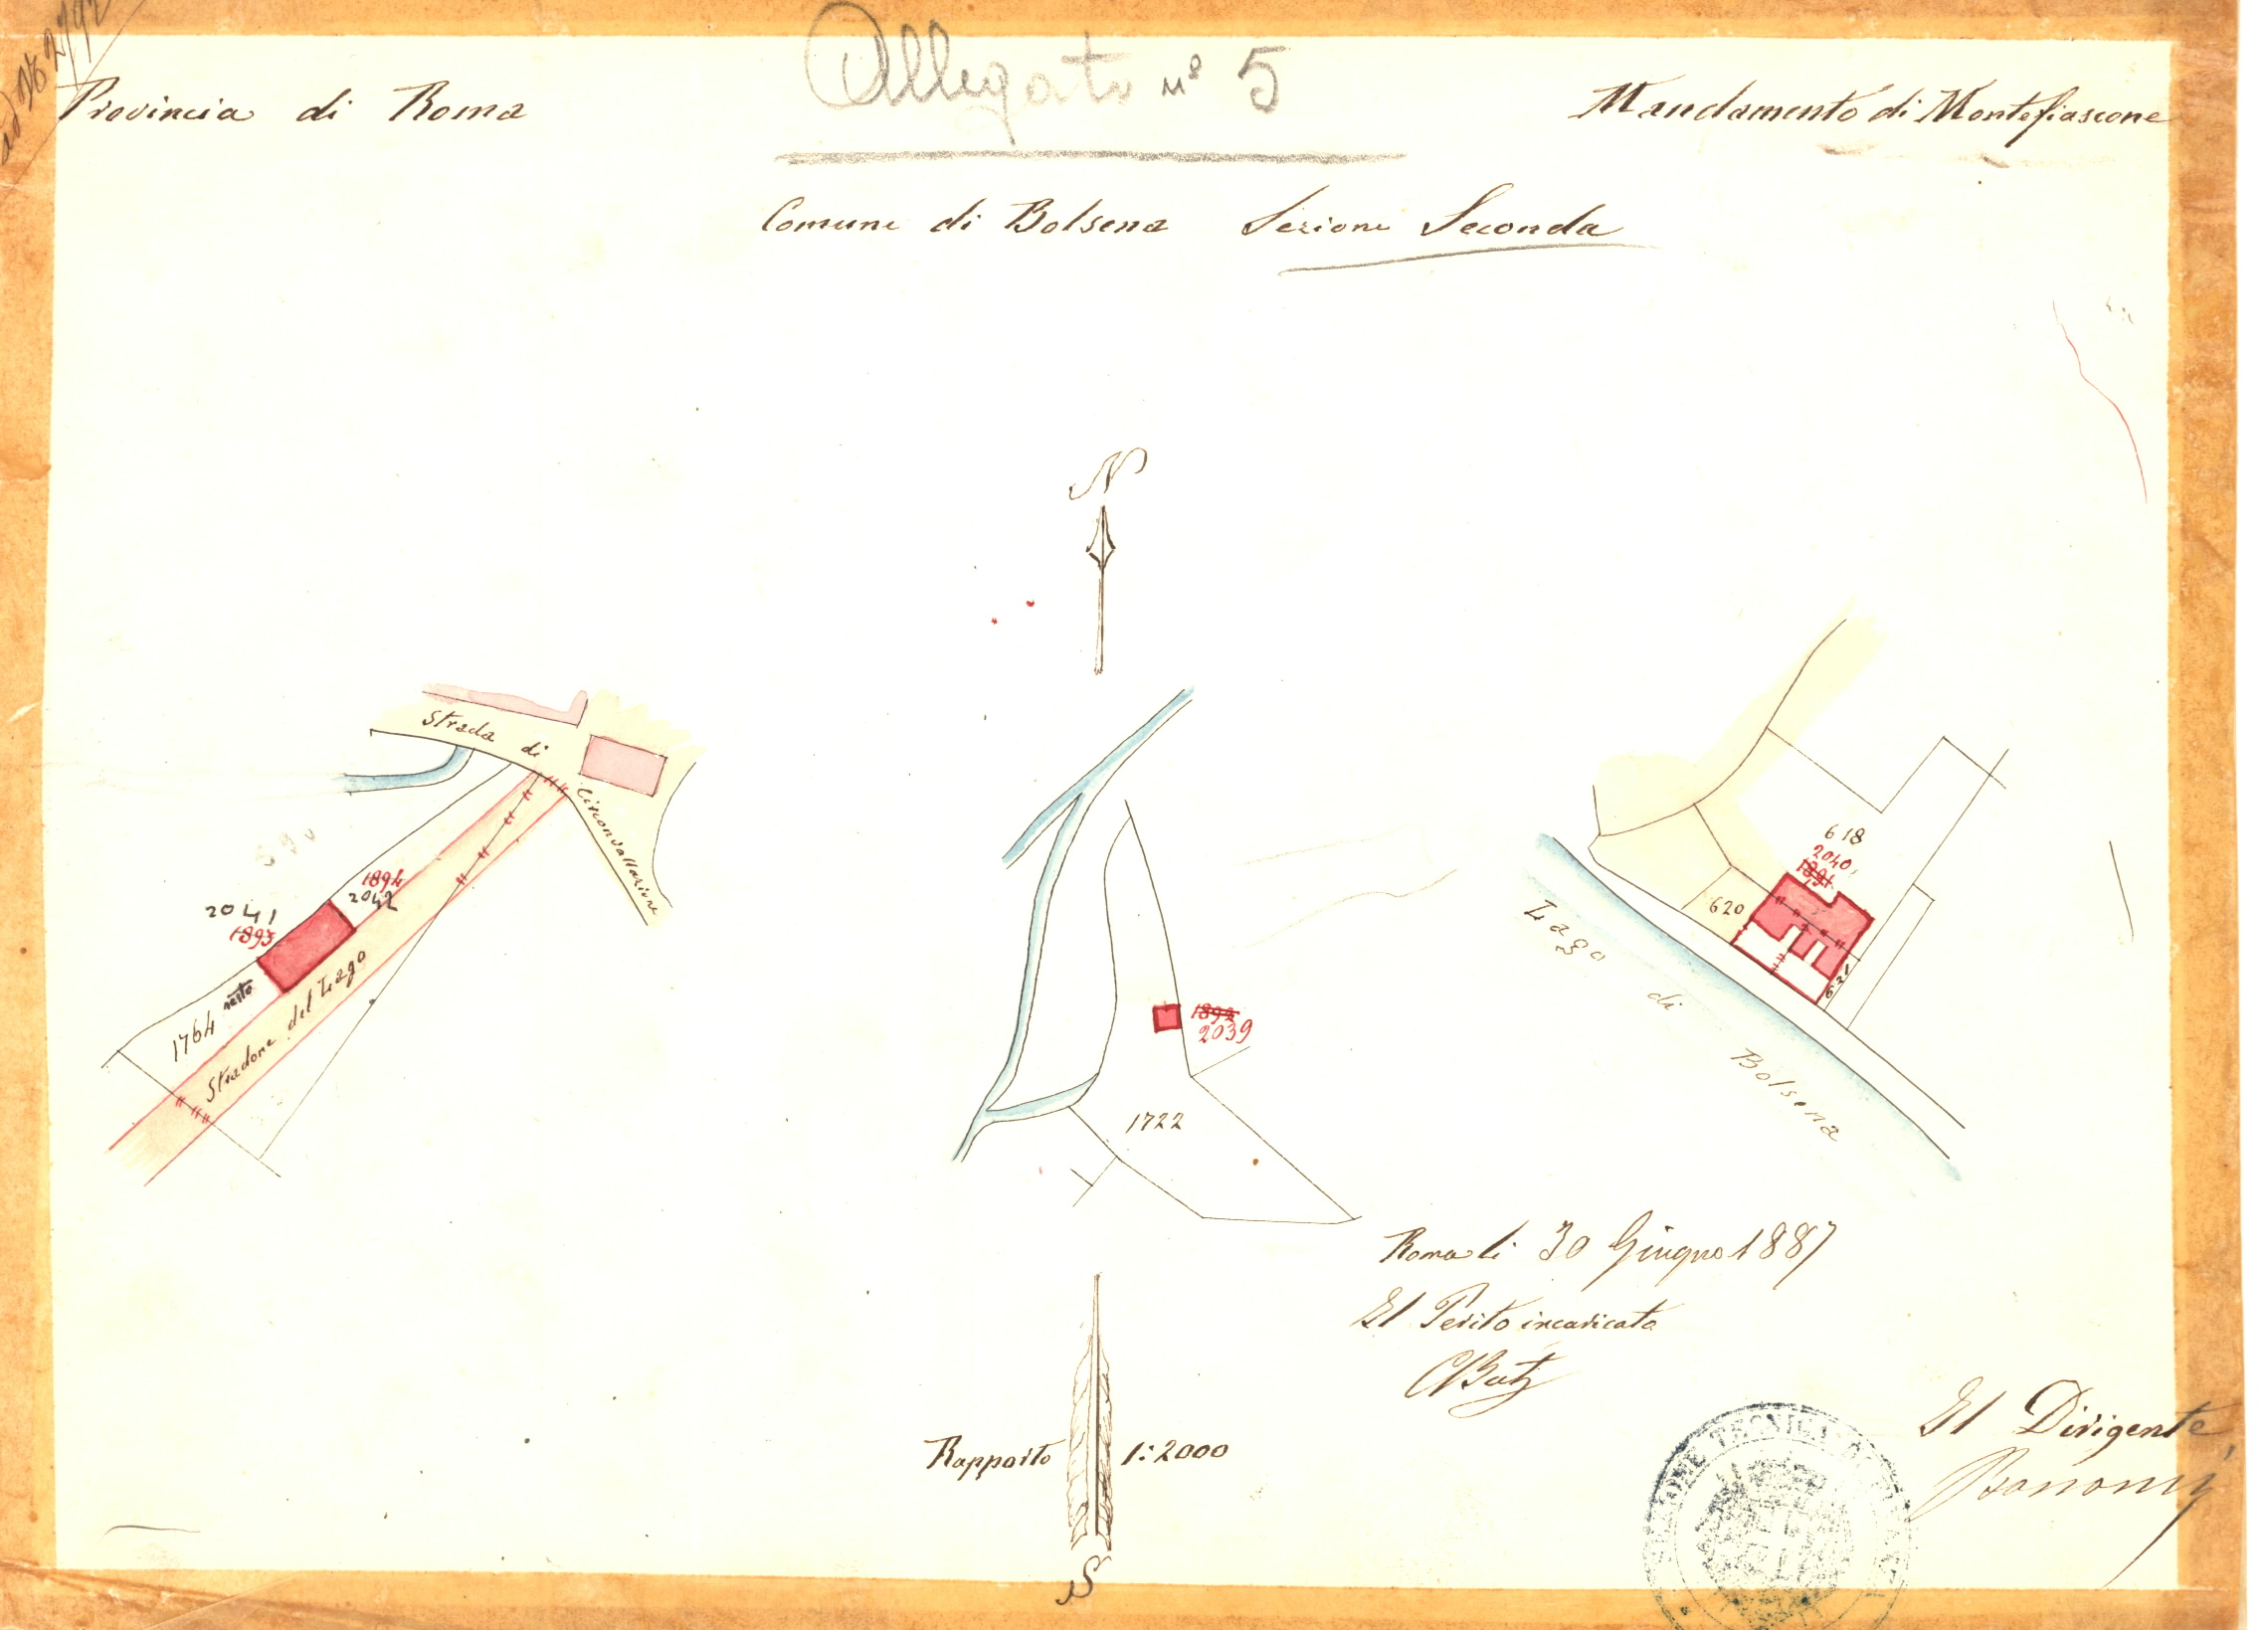 Allegato n° 5
Provincia di Roma
Mandamento di Montefiascone
Comune di Bolsena Sezione Seconda
N
Strada di
Circonvallazione
1894
2042
2041
1893
1764 resto
Stradone del Lago
1892
2039
1722
618
2040
1891
620
621
Lago di Bolsena
Roma li 30 Giugno 1887
Il Perito incaricato
Il Dirigente
Bonomi
Rapporto 1:2000
S
SEZIONE TECNICA